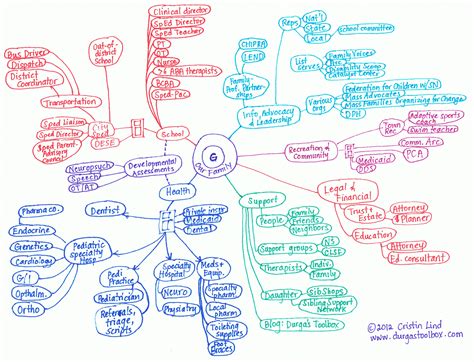 Clinical director
SpEd Director
SpEd Teacher
PT
OT
Nurse
7 ABA therapists
BCBA
SpEd-Pac
Out-of-
district
School
Bus Driver
Dispatch
District
Coordinator
Transportation
SpEd Liaison
SpEd Director
SpEd Parent-
Advisory
Council
City
SpEd
DESE
School
Neuropsych
Speech
OT
AT
Developmental
Assessments
Health
G
Our Family
CHIPRA
LEND
Family-
Prof. Partner-
ships
Info, Advocacy
& Leadership
Reps
Nat'l
State
Local
school committee
List
Serves
Family Voices
Disability Scoop
Catalyst Center
Various
orgs
Federation for Children w/SN
Mass Advocates
Mass Families Organizing for Change
DPH
Recreation &
Community
Town
Rec
Adaptive sports
coach
Swim teacher
Comm. Arc
Medicaid
PCA
DDS
Legal &
Financial
Trust +
Estate
Attorney
& Planner
Education
Attorney
Ed. consultant
Support
People
Family
Friends
Neighbors
Support groups
NS
CLSE
Therapists
Indiv.
Family
Dan's Agency
SibShops
Sibling Support
Network
Blog: Durga's Toolbox
Dentist
Private insur
Medicaid
Dental
Pharma co.
Endocrine
Genetics
Cardiology
G/I
Opthalm.
Ortho
Pediatric
specialty
Hosp
Pedi
Practice
Pediatrician
Referrals,
triage,
scripts
Specialty
Hospital
Neuro
Physiatry
Meds +
Equip.
Specialty
pharm
Local
pharm
Toileting
supplies
Foot
Braces
©2012 Cristin Lind
www.durgastoolbox.com